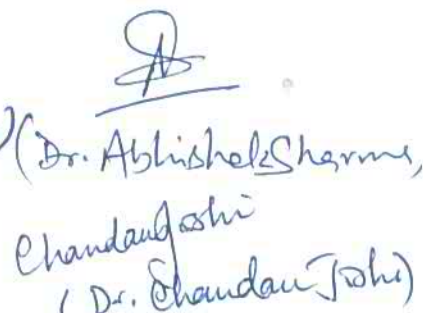 (Dr. Abhishek Sharma,
Chandan Joshi
(Dr. Chandan Joshi)